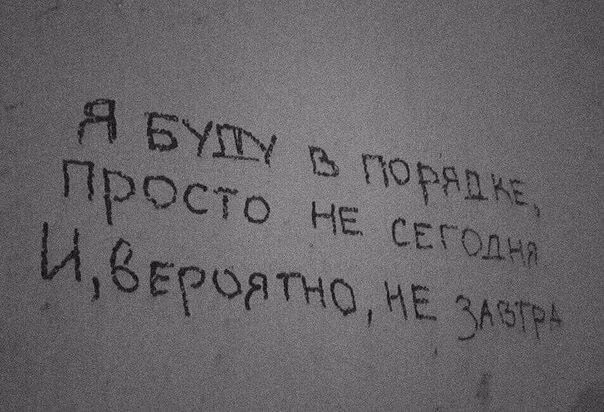 Я БУДУ В ПОРЯДКЕ,
ПРОСТО НЕ СЕГОДНЯ
И, ВЕРОЯТНО, НЕ ЗАВТРА